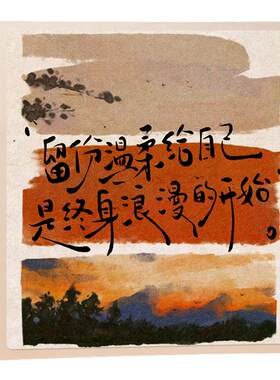 留份温柔给自己
是终身浪漫的开始。